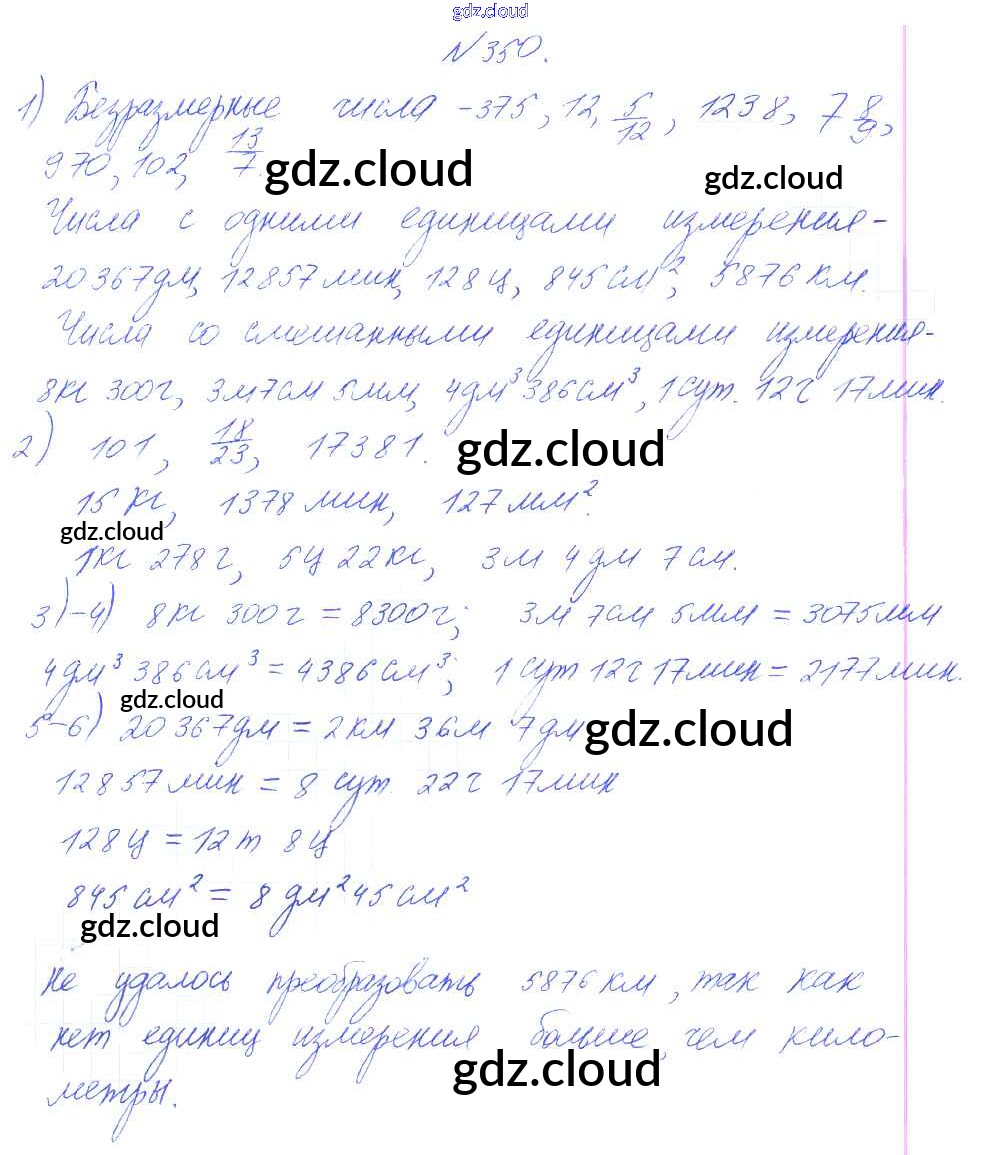 gdz.cloud
№350.
1) Безразмерные числа - 375, 12, 5/12, 1238, 7 8/9,
970, 102, 13/7. gdz.cloud gdz.cloud
Числа с одними единицами измерения -
20367дм, 12857мин, 128ц, 845см², 5876км.
Числа со смешанными единицами измерения -
8кг 300г, 3м7см5мм, 4дм³386см³, 1сут. 12ч 17мин.
2) 101, 18/23, 17381. gdz.cloud
15кг, 1378мин, 127мм².
gdz.cloud
1кг 278г, 5ц 22кг, 3м 4дм 7см.
3)-4) 8кг 300г = 8300г; 3м 7см 5мм = 3075мм
4дм³ 386см³ = 4386см³; 1сут 12ч 17мин = 2177мин.
gdz.cloud
5-6) 20367дм = 2км 36м 7дм gdz.cloud
12857мин = 8 сут. 22ч 17мин
128ц = 12т 8ц
845см² = 8дм²45см²
gdz.cloud
Не удалось преобразовать 5876км, так как
нет единиц измерения больше, чем кило-
gdz.cloud
метры.